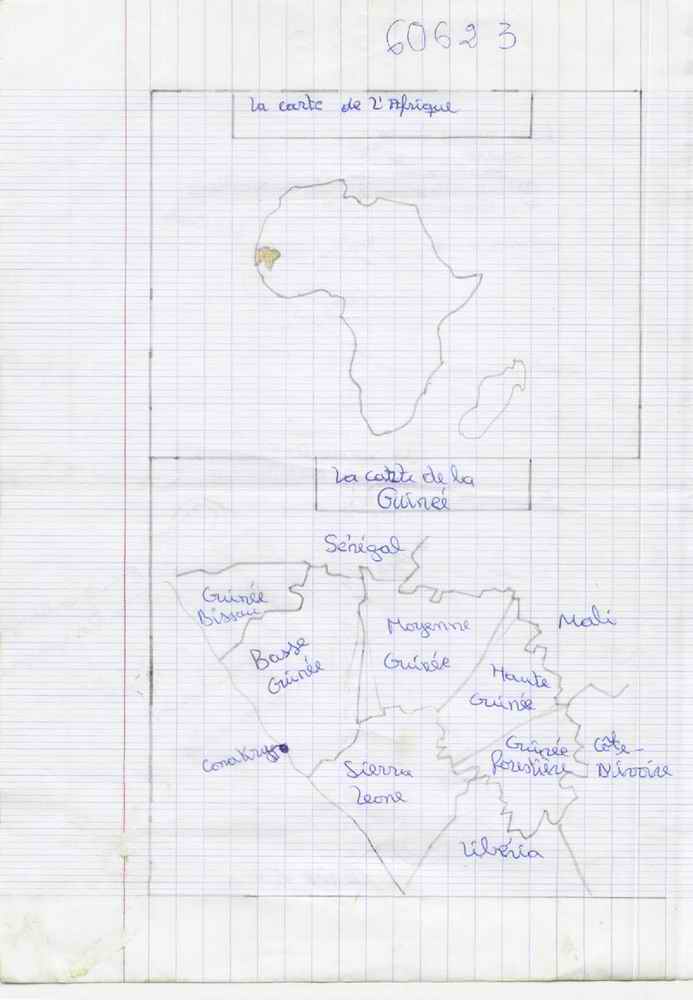 60623
La carte de l'Afrique
La carte de la
Guinée
Sénégal
Guinée
Bissau
Mali
Moyenne
Guinée
Basse
Guinée
Haute
Guinée
Conakry
Guinée
forestière
Côte-
D'ivoire
Sierra
Leone
Libéria